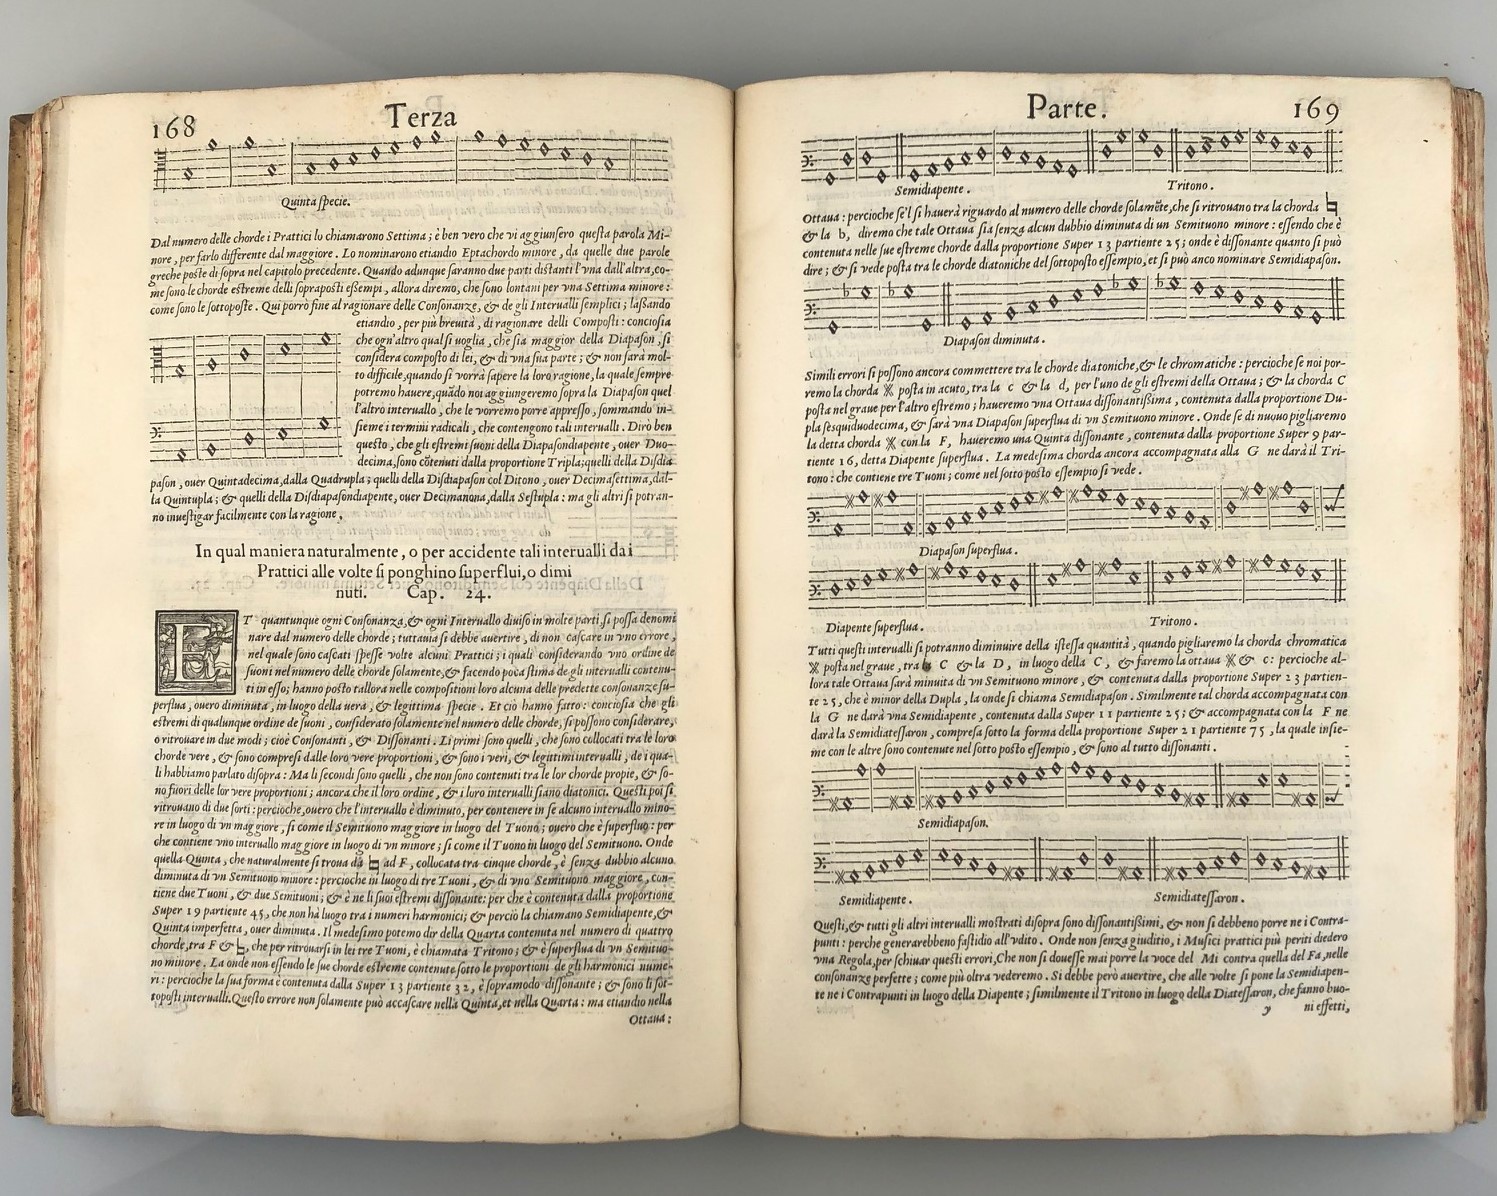 168
Terza
Quinta ſpecie.
Dal numero delle chorde i Prattici lo chiamarono Settima; è ben vero che vi aggiunſero queſta parola Mi-
nore, per farlo differente dal maggiore. Lo nominarono etiandio Eptachordo minore, da quelle due parole
greche poſte di ſopra nel capitolo precedente. Quando adunque ſaranno due parti diſtanti l'vna dall'altra, co-
me ſono le chorde eſtreme delli ſopraposti eſſempi, allora diremo, che ſono lontani per vna Settima minore:
come ſono le ſottopoſte. Qui porrò fine al ragionare delle Conſonanze, & de gli Interualli ſemplici; laſſando
etiandio, per più breuità, di ragionare delli Compoſti: concioſia
che ogn'altro qual ſi uoglia, che ſia maggior della Diapaſon, ſi
conſidera compoſto di lei, & di vna ſua parte; & non ſarà mol-
to difficile, quando ſi vorrà ſapere la loro ragione, la quale ſempre
potremo hauere, quādo noi aggiungeremo ſopra la Diapaſon quel
l'altro interuallo, che le vorremo porre appreſſo, ſommando in-
ſieme i termini radicali, che contengono tali interualli. Dirò ben
queſto, che gli eſtremi ſuoni della Diapaſondiapente, ouer Duo-
decima, ſono cōtenuti dalla proportione Tripla; quelli della Diſdia
paſon, ouer Quintadecima, dalla Quadrupla; quelli della Diſdiapaſon col Ditono, ouer Decimaſettima, dal-
la Quintupla; & quelli della Diſdiapaſondiapente, ouer Decimanona, dalla Seſtupla: ma gli altri ſi potran-
no inueſtigar facilmente con la ragione.
In qual maniera naturalmente, o per accidente tali interualli da i
Prattici alle volte ſi ponghino ſuperflui, o dimi
nuti. Cap. 24.
ET quantunque ogni Conſonanza, & ogni Interuallo diuiſo in molte parti, ſi poſſa denomi
nare dal numero delle chorde; tuttauia ſi debbe auertire, di non caſcare in vno errore,
nel quale ſono caſcati ſpeſſe volte alcuni Prattici; i quali conſiderando vno ordine de
ſuoni nel numero delle chorde ſolamente, & facendo poca ſtima de gli interualli contenu-
ti in eſſo; hanno poſto tallora nelle compoſitioni loro alcuna delle predette conſonanze ſu-
perflua, ouero diminuta, in luogo della uera, & legittima ſpecie. Et ciò hanno fatto: concioſia che gli
eſtremi di qualunque ordine de ſuoni, conſiderato ſolamente nel numero delle chorde, ſi poſſono conſiderare,
o ritrouare in due modi; cioè Conſonanti, & Diſſonanti. Li primi ſono quelli, che ſono collocati tra le loro
chorde vere, & ſono compreſi dalle loro vere proportioni, & ſono i veri, & legitimi interualli, de i qua-
li habbiamo parlato diſopra: Ma li ſecondi ſono quelli, che non ſono contenuti tra le lor chorde propie, & ſo-
no fuori delle lor vere proportioni; ancora che il loro ordine, & i loro interualli ſiano diatonici. Queſti poi ſi
ritrouano di due ſorti: percioche, ouero che l'interuallo è diminuto, per contenere in ſe alcuno interuallo mino-
re in luogo di vn maggiore, ſi come il Semituono maggiore in luogo del Tuono; ouero che è ſuperfluo: per
che contiene vno interuallo maggiore in luogo di vn minore; ſi come il Tuono in luogo del Semituono. Onde
quella Quinta, che naturalmente ſi troua da ♮ ad F, collocata tra cinque chorde, è ſenza dubbio alcuno
diminuta di vn Semituono minore: percioche in luogo di tre Tuoni, & di vno Semituono maggiore, con-
tiene due Tuoni, & due Semituoni; & è ne li ſuoi eſtremi diſſonante: per che è contenuta dalla proportione
Super 19 partiente 45, che non hà luogo tra i numeri harmonici; & perciò la chiamano Semidiapente, &
Quinta imperfetta, ouer diminuta. Il medeſimo potemo dir della Quarta contenuta nel numero di quattro
chorde, tra F & ♮, che per ritrouarſi in lei tre Tuoni, è chiamata Tritono; & è ſuperflua di vn Semituo-
no minore. La onde non eſſendo le ſue chorde eſtreme contenute ſotto le proportioni de gli harmonici nume-
ri: percioche la ſua forma è contenuta dalla Super 13 partiente 32, è ſopramodo diſſonante; & ſono li ſot-
topoſti interualli. Queſto errore non ſolamente può accaſcare nella Quinta, et nella Quarta: ma etiandio nella
Ottaua:
Parte.
169
Semidiapente.
Tritono.
Ottaua: percioche ſe'l ſi hauerà riguardo al numero delle chorde ſolamēte, che ſi ritrouano tra la chorda ♮
& la b, diremo che tale Ottaua ſia ſenza alcun dubbio diminuta di un Semituono minore: eſſendo che è
contenuta nelle ſue eſtreme chorde dalla proportione Super 13 partiente 25; onde è diſſonante quanto ſi può
dire; & ſi vede poſta tra le chorde diatoniche del ſottopoſto eſſempio, et ſi può anco nominare Semidiapaſon.
Diapaſon diminuta.
Simili errori ſi poſſono ancora commettere tra le chorde diatoniche, & le chromatiche: percioche ſe noi por-
remo la chorda X poſta in acuto, tra la c & la d, per l'uno de gli eſtremi della Ottaua; & la chorda C
poſta nel graue per l'altro eſtremo; haueremo vna Ottaua diſſonantiſſima, contenuta dalla proportione Du-
pla ſeſquiduodecima, & ſarà vna Diapaſon ſuperflua di vn Semituono minore. Onde ſe di nuouo pigliaremo
la detta chorda X con la F, haueremo una Quinta diſſonante, contenuta dalla proportione Super 9 par-
tiente 16, detta Diapente ſuperflua. La medeſima chorda ancora accompagnata alla G ne darà il Tri-
tono: che contiene tre Tuoni; come nel ſotto poſto eſſempio ſi vede.
Diapaſon ſuperflua.
Diapente ſuperflua.
Tritono.
Tutti queſti interualli ſi potranno diminuire della iſteſſa quantità, quando pigliaremo la chorda chromatica
X poſta nel graue, tra la C & la D, in luogo della C, & faremo la ottaua X & c: percioche al-
lora tale Ottaua ſarà minuta di vn Semituono minore, & contenuta dalla proportione Super 23 partien-
te 25, che è minor della Dupla, la onde ſi chiama Semidiapaſon. Similmente tal chorda accompagnata con
la G ne darà vna Semidiapente, contenuta dalla Super 11 partiente 25; & accompagnata con la F ne
darà la Semidiateſſaron, compreſa ſotto la forma della proportione Super 21 partiente 75, la quale inſie-
me con le altre ſono contenute nel ſotto poſto eſſempio, & ſono al tutto diſſonanti.
Semidiapaſon.
Semidiapente.
Semidiateſſaron.
Queſti, & tutti gli altri interualli moſtrati diſopra ſono diſſonantiſſimi, & non ſi debbeno porre ne i Contra-
punti: perche generarebbeno faſtidio all'vdito. Onde non ſenza giuditio, i Muſici prattici più periti diedero
vna Regola, per ſchiuar queſti errori, Che non ſi doueſſe mai porre la voce del Mi contra quella del Fa, nelle
conſonanze perfette; come più oltra vederemo. Si debbe però auertire, che alle volte ſi pone la Semidiapen-
te ne i Contrapunti in luogo della Diapente; ſimilmente il Tritono in luogo della Diateſſaron, che fanno buo-
y
ni effetti,